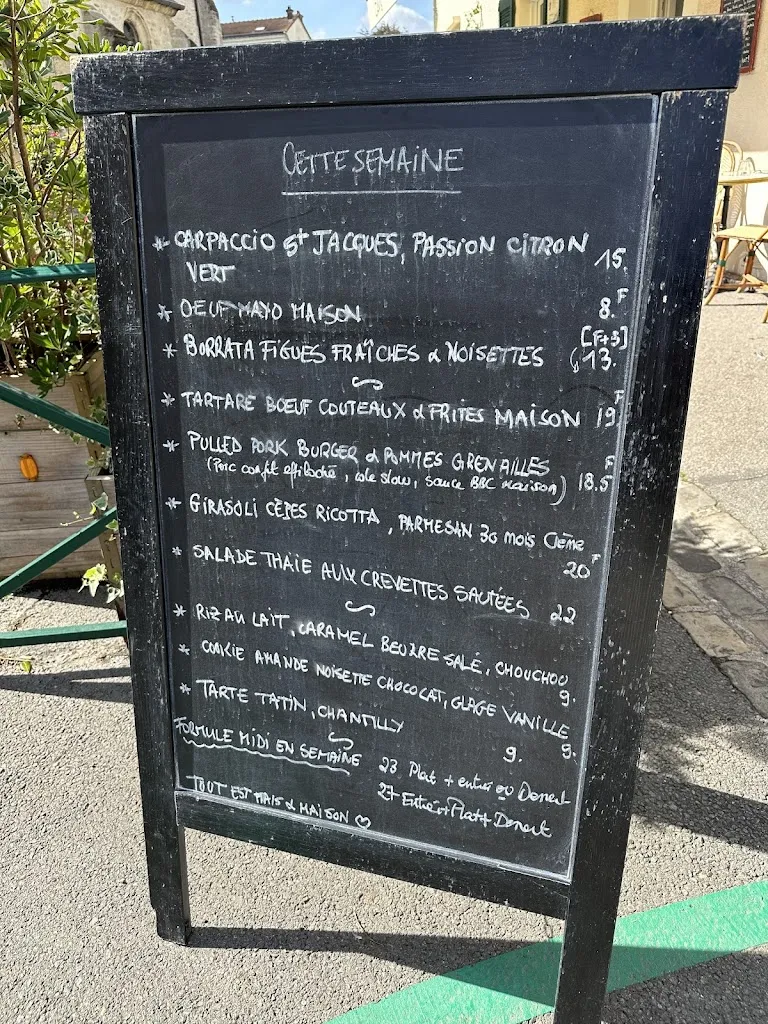 CETTE SEMAINE
* CARPACCIO St JACQUES, PASSION CITRON
VERT 15.
* OEUF MAYO MAISON 8. F
* BURRATA FIGUES FRAÎCHES & NOISETTES 13. [F+3]
* TARTARE BŒUF COUTEAUX & FRITES MAISON 19 F
* PULLED PORK BURGER & POMMES GRENAILLES F
(Porc confit effiloché, cole slow, sauce BBC maison) 18.5
* GIRASOLI CÈPES RICOTTA, PARMESAN 30 MOIS Crème
20 F
* SALADE THAIE AUX CREVETTES SAUTÉES 22
* RIZ AU LAIT, CARAMEL BEURRE SALÉ, CHOUCHOU
9.
* COOKIE AMANDE NOISETTE CHOCOLAT, GLACE VANILLE
9.
* TARTE TATIN, CHANTILLY
9.
FORMULE MIDI EN SEMAINE 23 Plat + entrée ou Dessert
27 Entrée + Plat + Dessert
TOUT EST FRAIS & MAISON ♡